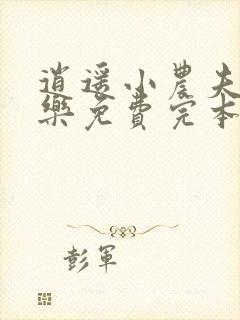 逍遥小農夫
樂免費完本
彭軍